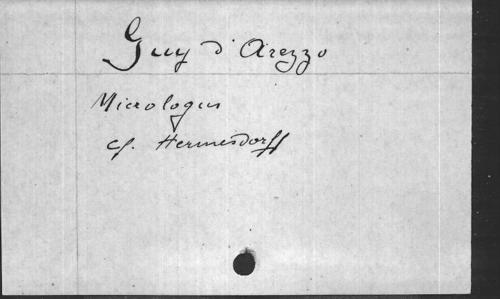 Guy d'Arezzo
Micrologus
cf. Hermesdorff